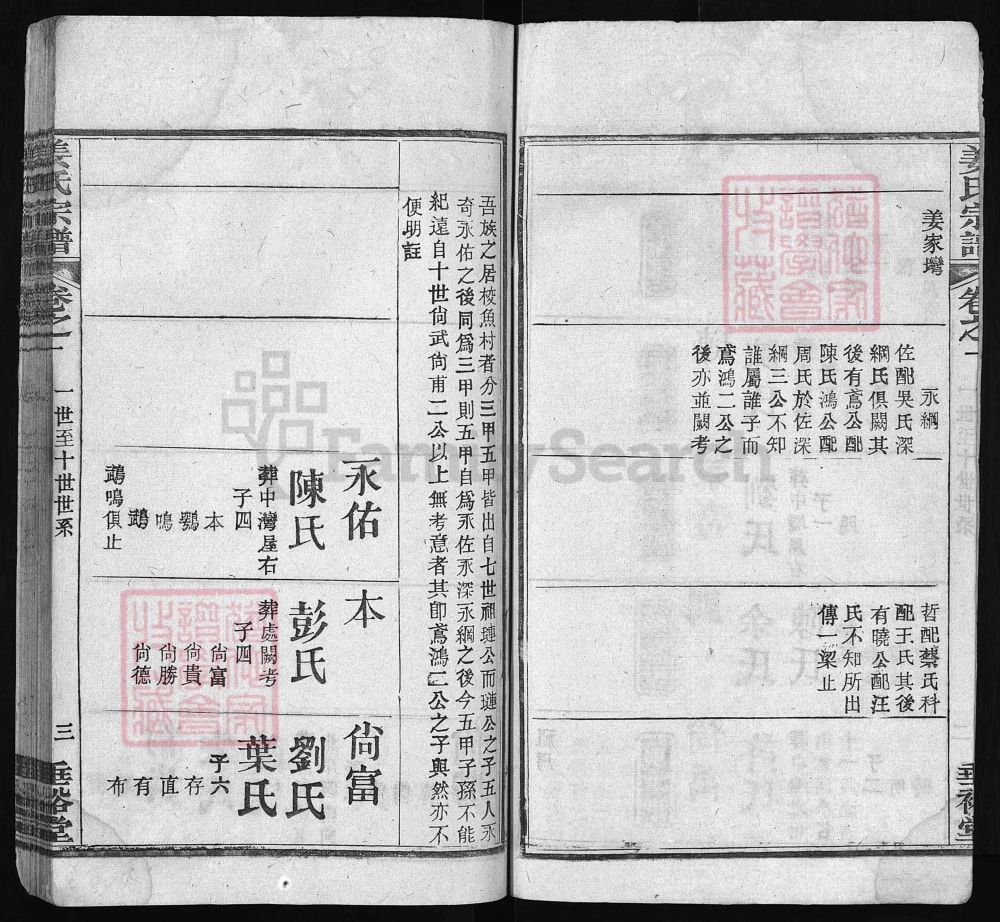 姜氏宗譜
卷之一
垂裕堂
姜家灣
永綱
佐配吳氏深
綱氏俱闕其
後有鳶公配
陳氏鴻公配
周氏於佐深
綱三公不知
誰屬誰子而
鳶鴻二公之
後亦並闕考
哲配蔡氏科
配王氏其後
有曉公配汪
氏不知所出
傳一梁止
吾族之居棱魚村者分三甲五甲皆出自七世祖璉公而璉公之子五人永
奇永佑之後同爲三甲則五甲自爲永佐永深永綱之後今五甲子孫不能
紀遠自十世尙武尙甫二公以上無考意者其卽鳶鴻二公之子與然亦不
便明註
永佑
陳氏
葬中灣屋右
子四
本
鸚
鳴
鵡
鵡鳴俱止
本
彭氏
葬處闕考
子四
尙富
尙貴
尙勝
尙德
尙富
劉氏
葉氏
子六
存
直
有
布
姜氏宗譜
卷之一
一世至十世世系
三
垂裕堂
FamilySearch